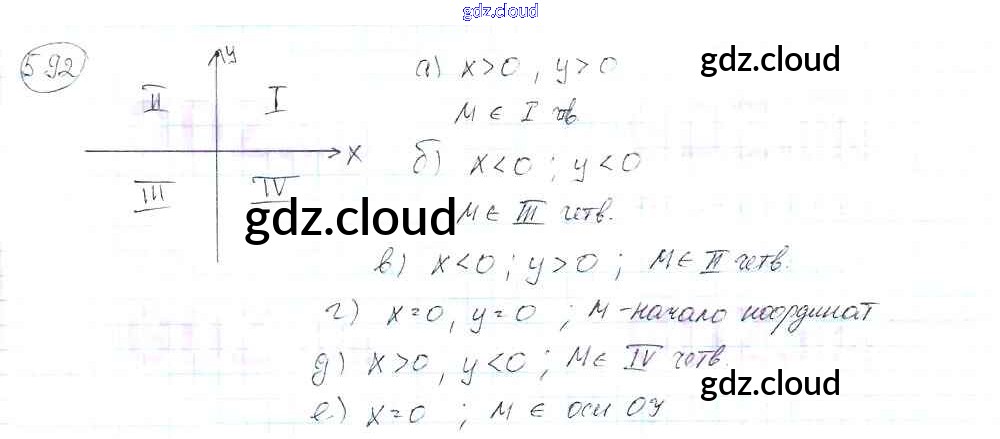 gdz.cloud
gdz.cloud
592
y
а) x>0, y>0
gdz.cloud
II I
M ∈ I тв
x
б) x<0; y<0
III IV
gdz.cloud
M ∈ III четв.
в) x<0; y>0; M ∈ II четв.
г) x=0, y=0; M - начало координат
д) x>0, y<0; M ∈ IV четв.
gdz.cloud
е) x=0; M ∈ оси OY